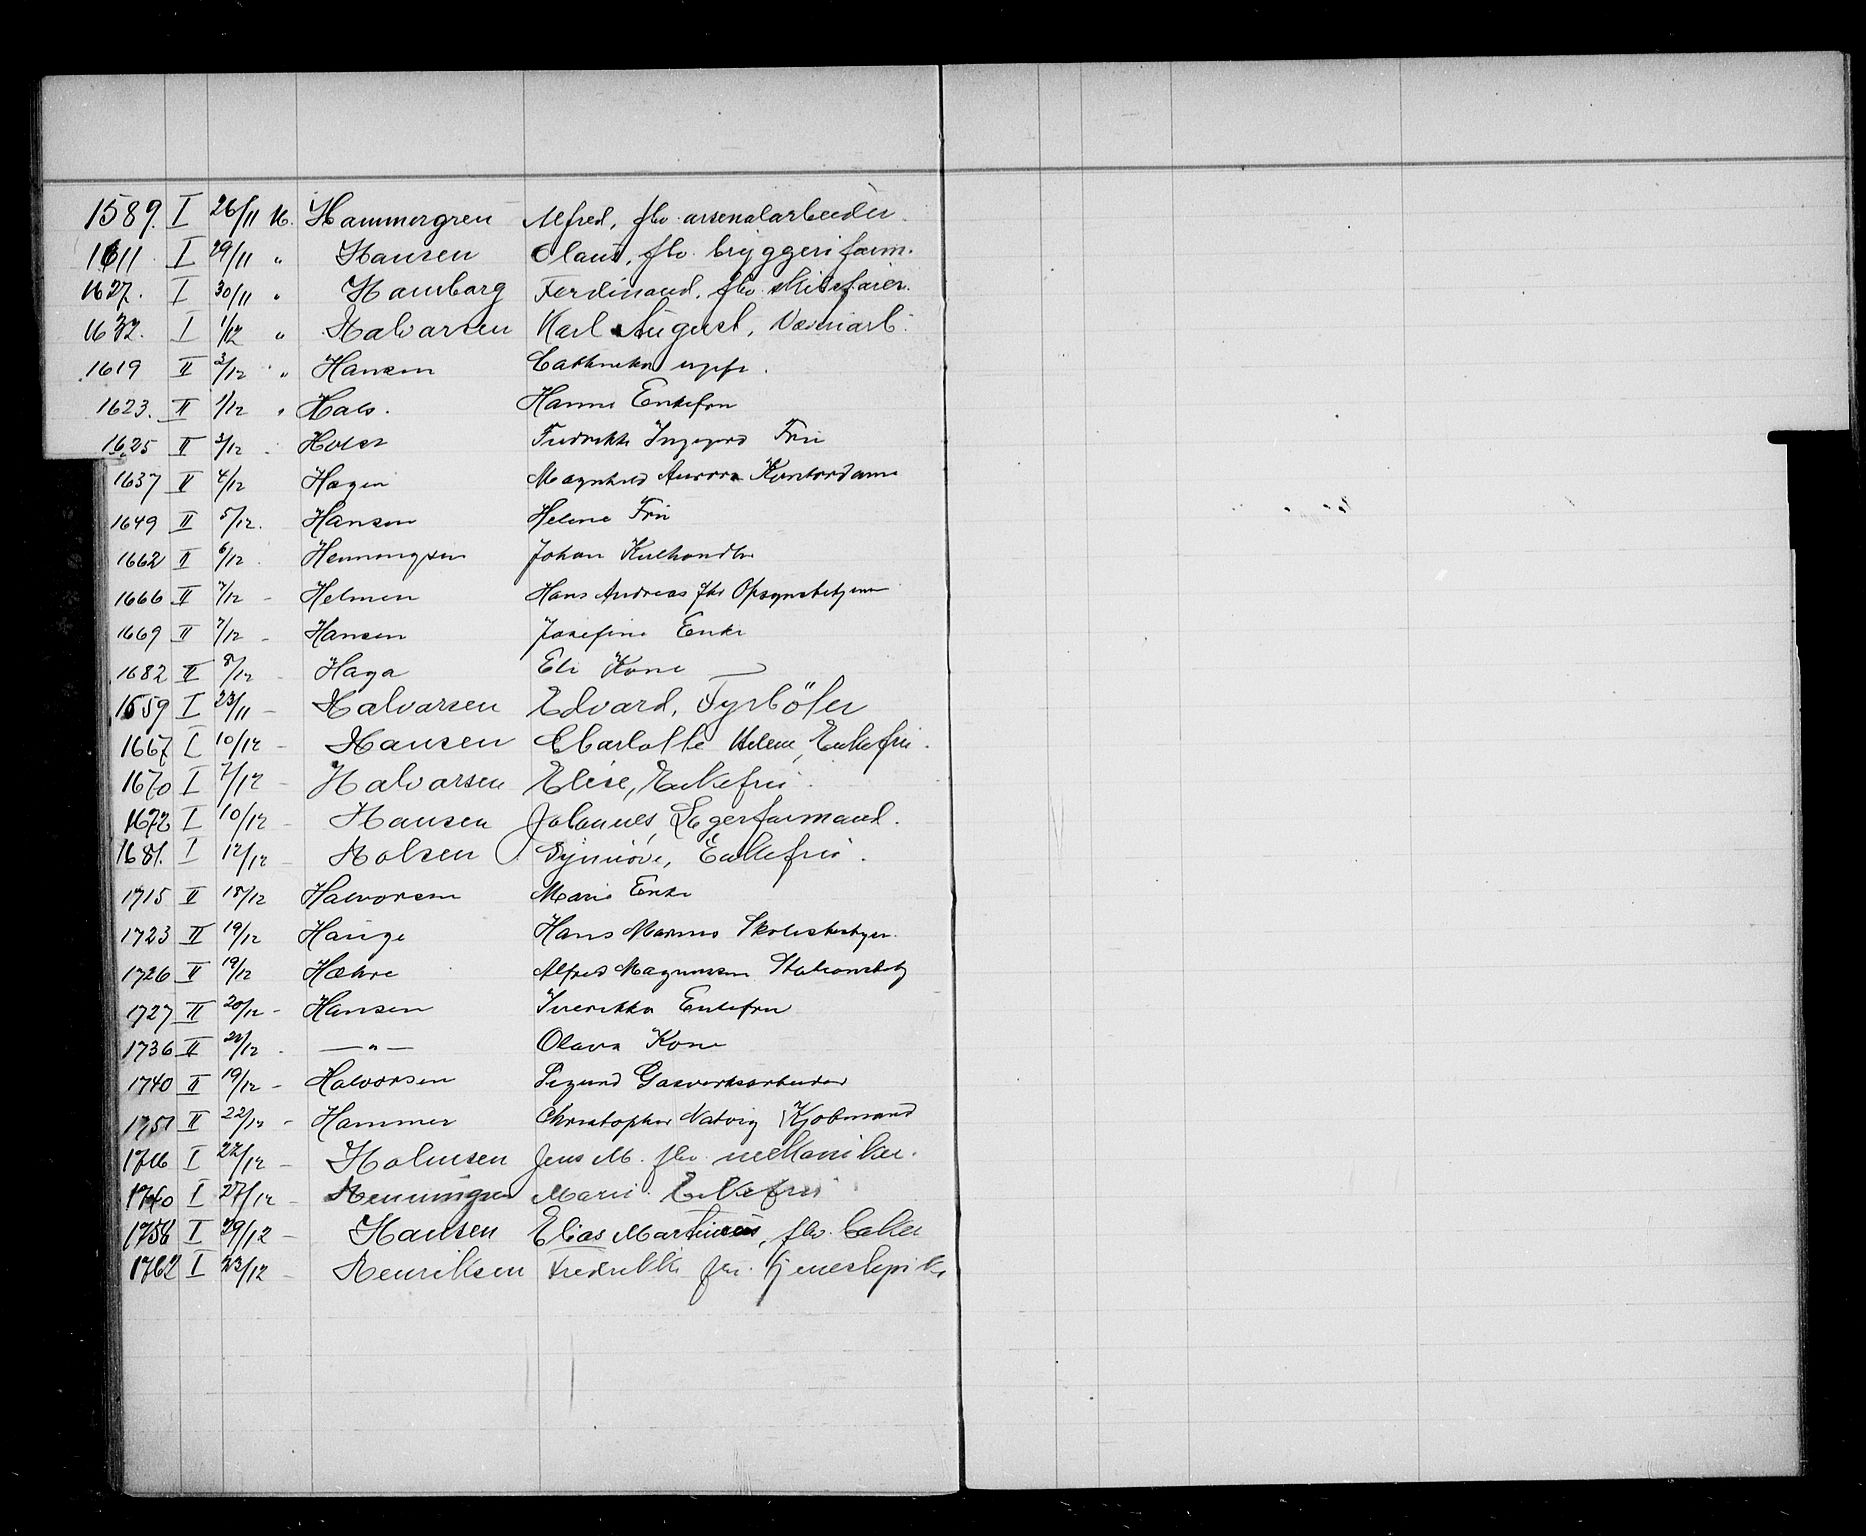 1589. I 26/11 16. Hammergren Alfred, fhv. arsenalarbeider.
1611 I 29/11 " Hansen Olaus, fhv. bryggeriform.
1627. I 30/11 " Hamborg Ferdinand, fhv. skibsfører.
1632. I 1/12 " Halvorsen Karl August, Værnarb.
1619 II 2/12 " Hansen ugift.
1623. II 1/12 " Hals. Hanna Enkefru
1625 II 3/12 Holst Fredrikke Ingegerd Fru
1637 II 4/12 Hagen Magnhild Aurora Kontordame
1649 II 5/12. Hansen Helene Fru
1662 II 6/12 Henningsen Johan Kulhandler
1666 II 7/12 - Helmen Hans Andreas fhv Opsynsbetjen
1669 II 7/12 - Hansen Josefine Enke
1682 II 8/12 - Haga Eli Kone
1559 I 23/11 - Halvorsen Edvard, Fyrbøter
1667 I 10/12 - Hansen Charlotte Helene, Enkefru.
1670 I 7/12 - Halvorsen Elise, Enkefru.
1672 I 10/12 - Hansen Johannes, Lagerformand.
1681. I 12/12 - Holsen Synnøve, Enkefru.
1715 II 18/12 Halvorsen Marie Enke
1723 II 19/12 Hauge Hans Marius Skolebestyrer.
1726 II 19/12 Hæhre Alfred Magnussen Stationsbetj
1727 II 20/12 - Hansen Sverikka Enkefru
1736 II 20/12 - — " — Olava Kone
1740 II 19/12 - Halvorsen Sigurd Gasverksarbeider
1751 II 22/12 - Hammer Christopher Natvig Kjøbmand
1716 I 22/12 - Holmsen Jens M. fhv. mekaniker.
1740 I 27/12 - Henningsen Marie Enkefru
1758 I 29/12 - Hansen Elias Martinius, fhv. baker
1762 I 23/12 - Henriksen Fredrikke fhv. tjenestepike